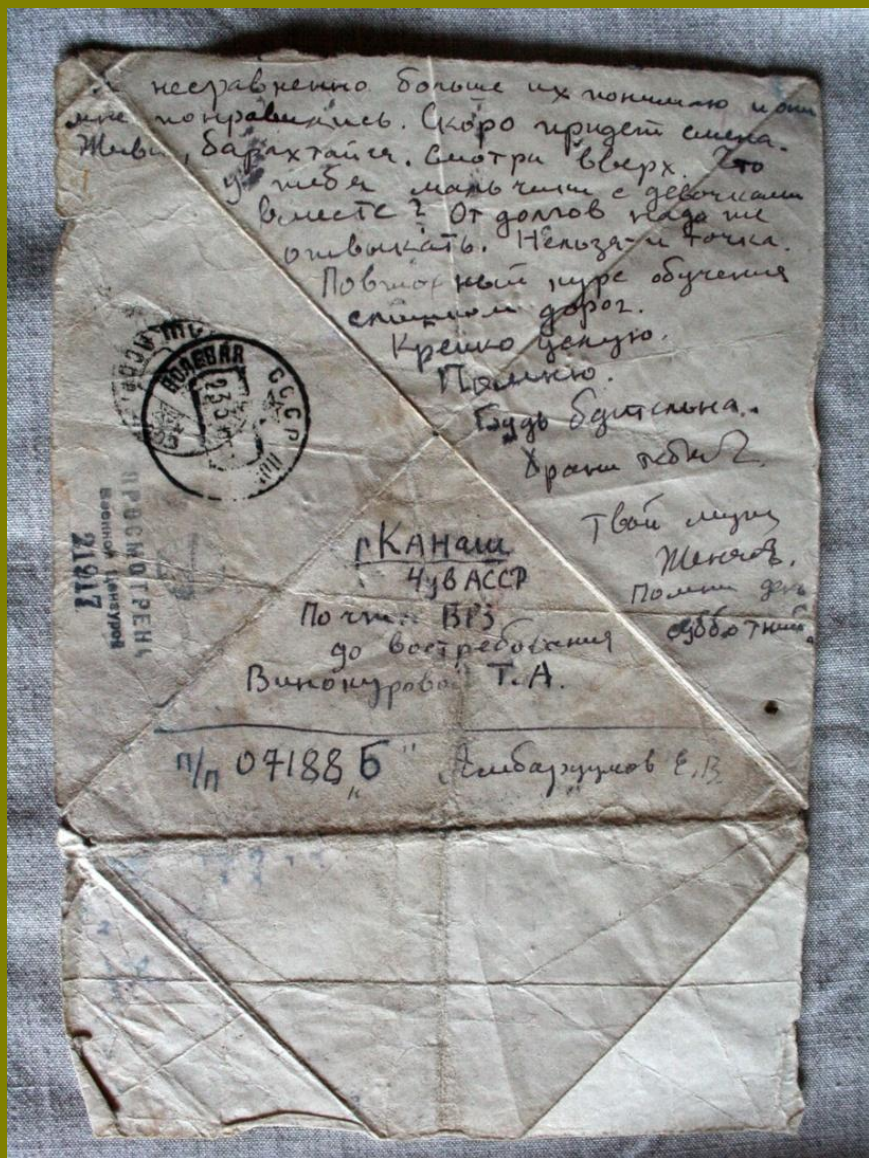 несравненно больше их понимаю и они
мне понравились. Скоро придет смена.
Живи, барахтайся. Смотри вверх. Что
у тебя мальчики с девочками
вместе? От долгов надо же
отвыкать. Нельзя и точка.
Повторный курс обучения
слишком дорог.
Крепко целую.
Помню.
Будь бдительна.
Храни тебя
Твой
Помни день
субботний.
ПОЛЕВАЯ СССР
ПРОСМОТРЕНО
Военной Цензурой
21917
г КАНАШ
ЧувАССР
Почта ВРЗ
до востребования
Винокуровой Т.А.
п/п 07188 „Б"